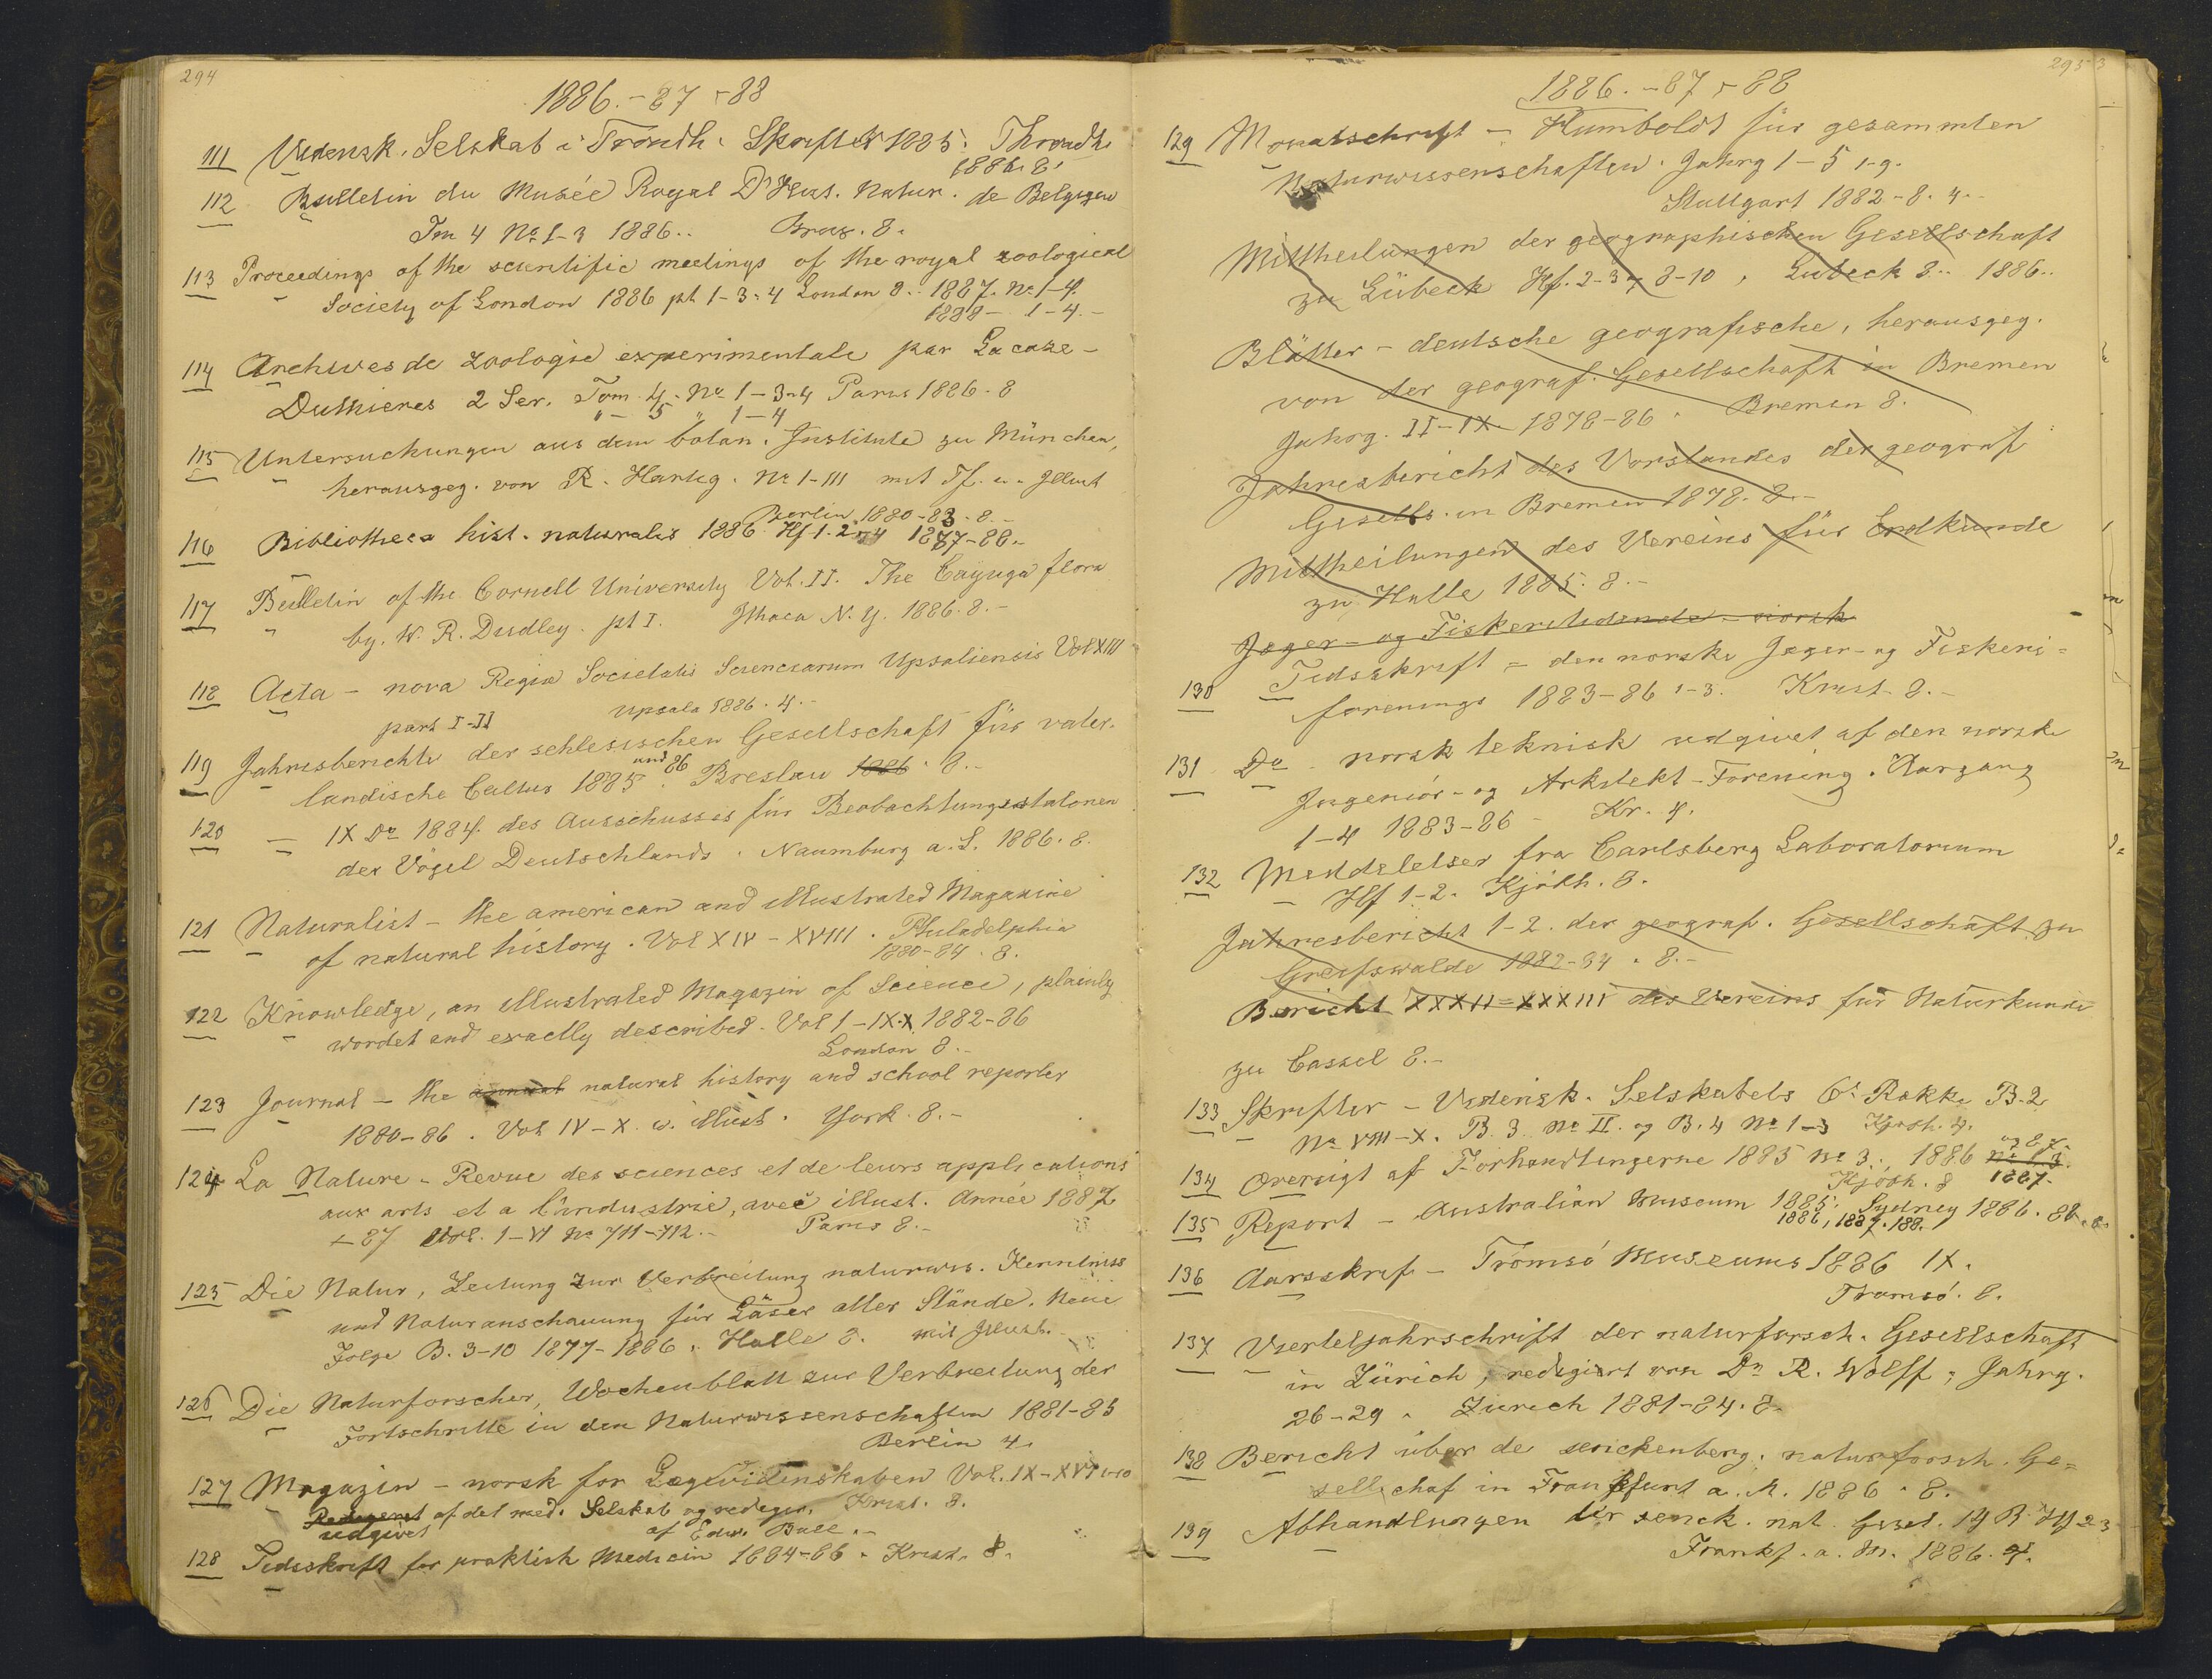 294
1886.-87-88
111 Vidensk. Selskab i Trondh. Skrifter 1885. Throndh.
1886. 8.
112 Bulletin du Musée Royal D'Hist. Natur. de Belgique
Tm 4 No 1-3 1886.. Brux. 8.
113 Proceedings of the scientific meetings of the royal zoological
Society of London 1886 pt 1-3-4 London 8.. 1887. No 1-4.
1888 - 1-4.-
114 Archives de zoologie experimentale par Lacaze-
Duthieres 2 Ser. Tom. 4. No 1-3-4 Paris 1886. 8
"- 5 " 1-4
115 Untersuchungen aus dem botan. Institute zu München,
herausgeg. von R. Hartig. No 1-III mit Tf. u. Illust
Berlin 1880-83. 8.-
116 Bibliotheca hist. naturalis 1886 Hf 1.2-4 1887-88.
117 Bulletin of the Cornell University Vol. II. The Cayuga flora
by. W. R. Dudley. pt I. Ithaca N. Y. 1886. 8.-
118 Acta - nova Regiæ Societatis Scienciarum Upsaliensis Vol XIII
part I-II Upsala 1886. 4.-
119 Jahresberichte der schlesischen Gesellschaft für vater-
ländische Cultus 1885 und 86. Breslau 1886. 8.-
120 - IX Do 1884. des Ausschusses für Beobachtungsstationen
der Vögel Deutschlands. Naumburg a. S. 1886. 8.
121 Naturalist - the american and illustrated Magazine
of natural history. Vol XIV - XVIII. Philadelphia
1880-84. 8.
122 Knowledge, an illustrated Magazin of Science, plainly
wordet and exactly described. Vol 1-IX-X 1882-86
London 8.-
123 Journal - the annual natural history and school reporter
1880-86. Vol IV-X. w. illust. York. 8.-
124 La Nature - Revue des sciences et de leurs applications
aux arts et a l'industrie, avec illust. Année 1887
-87 Vol. 1-VI No 711-712.- Paris 8.-
125 Die Natur, Zeitung zur Verbreitung naturwis. Kenntniss
und Naturanschauung für Läser aller Stände. Neue
Folge B. 3-10 1877-1886. Halle 8. mit Illust.
126 Die Naturforscher, Wochenblatt zur Verbreitung der
Fortschritte in den Naturwissenschaften 1881-85
Berlin 4.
127 Magazin - norsk for Lægevidenskaben Vol. IX-XVI 1-10
Redigeret af det med. Selskab og rediger. Krist. 8.
udgivet af Edw. Bull.-
128 Tidsskrift for praktisk Medicin 1884-86. Krist. 8.
295
1886.-87-88
129 Monatschrift - Humboldt für gesammten
Naturwissenschaften. Jahrg 1-5 1-9.
Stuttgart 1882-8. 4.-
Mittheilungen der geographischen Gesellschaft
zu Lübeck Hf. 2-3, 8-10, Lübeck 8.. 1886..
Blätter - deutsche geografische, herausgeg.
von der geograf. Gesellschaft in Bremen
Jahrg. II-IX 1878-86. Bremen 8.
Jahresbericht des Vorstandes der geograf
Gesells. in Bremen 1878. 8.-
Mittheilungen des Vereins für Erdkunde
zu Halle 1885. 8.-
Jæger- og Fiskeritidende - norsk
130 Tidsskrift - den norske Jæger- og Fiskeri-
forenings 1883-86 1-3. Krist. 8.-
131 Do. norsk teknisk udgivet af den norske
Ingeniör- og Arkitekt-Forening. Aargang
1-4 1883-86 - Kr. 4.
132 Meddelelser fra Carlsberg Laboratorium
Hf 1-2. Kjöbh. 8.
Jahresbericht 1-2. der geograf. Gesellschaft zu
Greifswalde 1882-84. 8.-
Bericht XXXII-XXXIII des Vereins für Naturkunde
zu Cassel 8.-
133 Skrifter - Vidensk. Selskabets 6t Række B. 2
No VIII-X. B. 3 No II. og B. 4 No 1-3 Kjøbh. 4.
134 Oversigt af Forhandlingerne 1885 No 3. 1886 No 1-3. og 87.
Kjöbh. 8 1887.
135 Report - Australian Museum 1885. Sydney 1886. 8
1886, 1887. 188.
136 Aarsskrift - Tromsö Museums 1886 IX.
Tromsö. 8.
137 Vierteljahrschrift der naturforsch. Gesellschaft
in Zürich, redigiert von Dr R. Wolff; Jahrg.
26-29. Zürich 1881-84. 8.
138 Bericht über de senckenberg. naturforsch. Ge=
sellschaf in Frankfurt a. M. 1886. 8.
139 Abhandlungen der senck. nat. Gesel. 14 B. Hf 2-3
Frankf. a. M. 1886. 4.